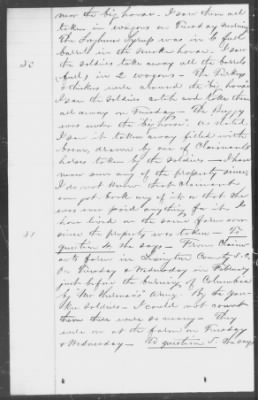 near the big house - I saw them all
taken in wagons on Tuesday
The Sorghum Syrup was in 6 full
barrels in the smoke house. I saw
30
the soldiers take away all the barrels
full, in 2 wagons - The Turkeys
& chickens were around the big house
I saw the soldiers catch and take them
all away on Tuesday - The Buggy
was under the "big house"
I saw it taken away filled with
bacon, drawn by one of Claimants
horses taken by the soldiers - I have
never seen any of the property since
I do not know that claimant
ever got back any of it or that she
was ever paid anything for it - I
have lived on the same farm ever
31
since the property was taken - To
question 4. she says - From Claim-
ants farm in Lexington County S.C.
on Tuesday & Wednesday in February
just before the burning of Columbia
by "Mr Sherman's" Army. By the yan-
kee soldiers - I could not count
them there were so many - They
were on at the farm on Tuesday
& Wednesday - To question 5. she says